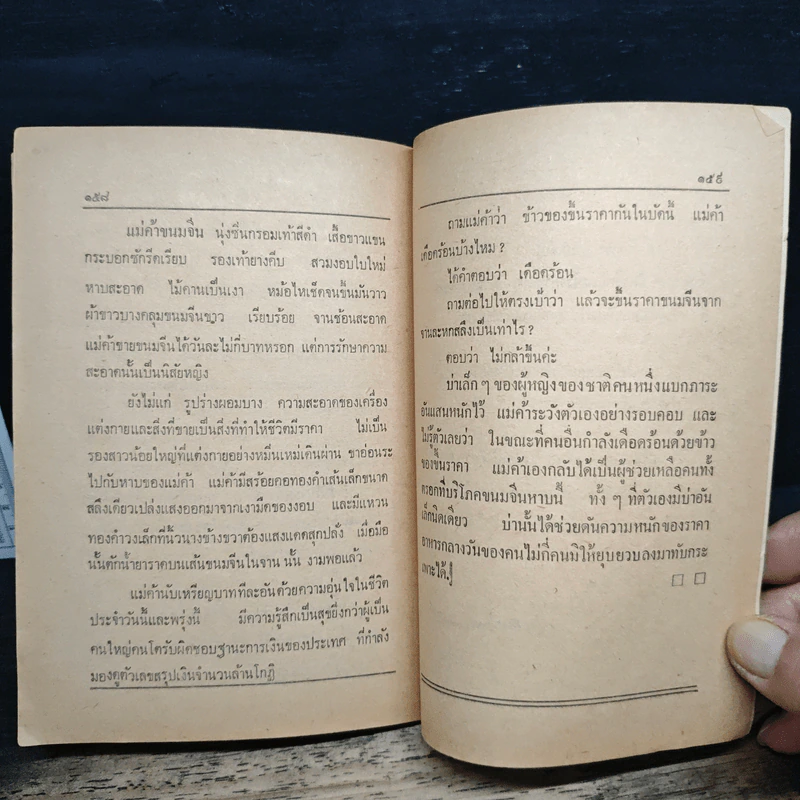 ๑๕๘
แม่ค้าขนมจีน นุ่งซิ่นกรอมเท้าสีดำ เสื้อขาวแขน
กระบอกซักรีดเรียบ รองเท้ายางคีบ สวมงอบใบใหม่
หาบสะอาด ไม้คานเป็นเงา หม้อไหเช็ดจนขึ้นมันวาว
ผ้าขาวบางคลุมขนมจีนขาว เรียบร้อย จานช้อนสะอาด
แม่ค้าขายขนมจีนได้วันละไม่กี่บาทหรอก แต่การรักษาความ
สะอาดนั้นเป็นนิสัยหญิง
ยังไม่แก่ รูปร่างผอมบาง ความสะอาดของเครื่อง
แต่งกายและสิ่งที่ขายเป็นสิ่งที่ทำให้ชีวิตมีราคา ไม่เป็น
รองสาวน้อยใหญ่ที่แต่งกายอย่างหมิ่นเหม่เดินผ่าน ขาอ่อนระ
ไปกับหาบของแม่ค้า แม่ค้ามีสร้อยคอทองคำเส้นเล็กขนาด
สลึงเดียวเปล่งแสงออกมาจากเงามืดของงอบ และมีแหวน
ทองคำวงเล็กที่นิ้วนางข้างขวาต้องแสงแดดสุกปลั่ง เมื่อมือ
นั้นตักน้ำยาราดบนเส้นขนมจีนในจาน นั้น งามพอแล้ว
แม่ค้านับเหรียญบาททีละอันด้วยความอุ่นใจในชีวิต
ประจำวันนี้และพรุ่งนี้ มีความรู้สึกเป็นสุขยิ่งกว่าผู้เป็น
คนใหญ่คนโตรับผิดชอบฐานะการเงินของประเทศ ที่กำลัง
มองดูตัวเลขสรุปเงินจำนวนล้านโกฏิ
๑๕๙
ถามแม่ค้าว่า ข้าวของขึ้นราคากันในบัดนี้ แม่ค้า
เดือดร้อนบ้างไหม ?
ได้คำตอบว่า เดือดร้อน
ถามต่อไปให้ตรงเป้าว่า แล้วจะขึ้นราคาขนมจีนจาก
จานละหกสลึงเป็นเท่าไร ?
ตอบว่า ไม่กล้าขึ้นค่ะ
บ่าเล็ก ๆ ของผู้หญิงของชาติคนหนึ่งแบกภาระ
อันแสนหนักไว้ แม่ค้าระวังตัวเองอย่างรอบคอบ และ
ไม่รู้ตัวเลยว่า ในขณะที่คนอื่นกำลังเดือดร้อนด้วยข้าว
ของขึ้นราคา แม่ค้าเองกลับได้เป็นผู้ช่วยเหลือคนทั้ง
ตรอกที่บริโภคขนมจีนหาบนี้ ทั้ง ๆ ที่ตัวเองมีบ่าอัน
เล็กนิดเดียว บ่านั้นได้ช่วยดันความหนักของราคา
อาหารกลางวันของคนไม่กี่คนมิให้ยุบยวบลงมาทับกระ
เพาะได้.